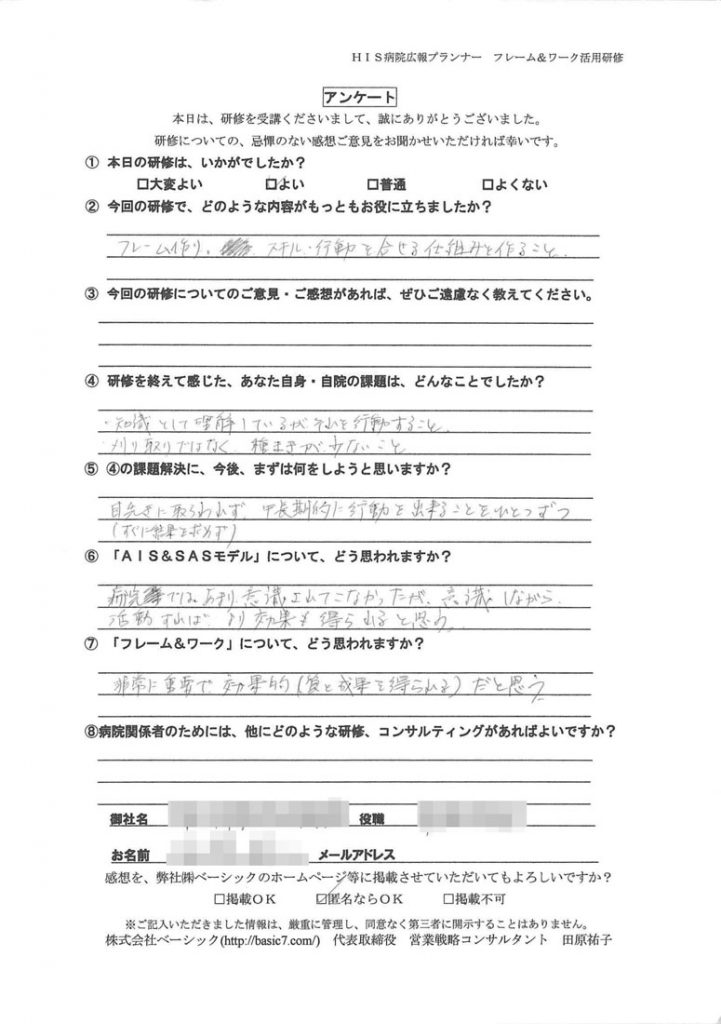 ＨＩＳ病院広報プランナー　フレーム＆ワーク活用研修
アンケート
本日は、研修を受講くださいまして、誠にありがとうございました。
研修についての、忌憚のない感想ご意見をお聞かせいただければ幸いです。
① 本日の研修は、いかがでしたか？
□大変よい　☑よい　□普通　□よくない
② 今回の研修で、どのような内容がもっともお役に立ちましたか？
フレーム作り。スキル・行動を合せる仕組みを作ること。
③ 今回の研修についてのご意見・ご感想があれば、ぜひご遠慮なく教えてください。
④ 研修を終えて感じた、あなた自身・自院の課題は、どんなことでしたか？
・知識として理解しているがそれを行動すること。
・刈り取りではなく、種まきが少ないこと
⑤ ④の課題解決に、今後、まずは何をしようと思いますか？
目先きに取らわれず、中長期的に行動を出来ることをひとつずつ
(すぐに結果を求めず)
⑥ 「ＡＩＳ＆ＳＡＳモデル」について、どう思われますか？
病院では、あまり意識されてこなかったが、意識しながら
活動すれば、より効果も得られると思う。
⑦ 「フレーム＆ワーク」について、どう思われますか？
非常に重要で、効果的(質と成果を得られる)だと思う。
⑧病院関係者のためには、他にどのような研修、コンサルティングがあればよいですか？
御社名　役職
お名前　メールアドレス
感想を、弊社㈱ベーシックのホームページ等に掲載させていただいてもよろしいですか？
□掲載ＯＫ　☑匿名ならＯＫ　□掲載不可
※ご記入いただきました情報は、厳重に管理し、同意なく第三者に開示することはありません。
株式会社ベーシック(http://basic7.com/)　代表取締役　営業戦略コンサルタント　田原祐子